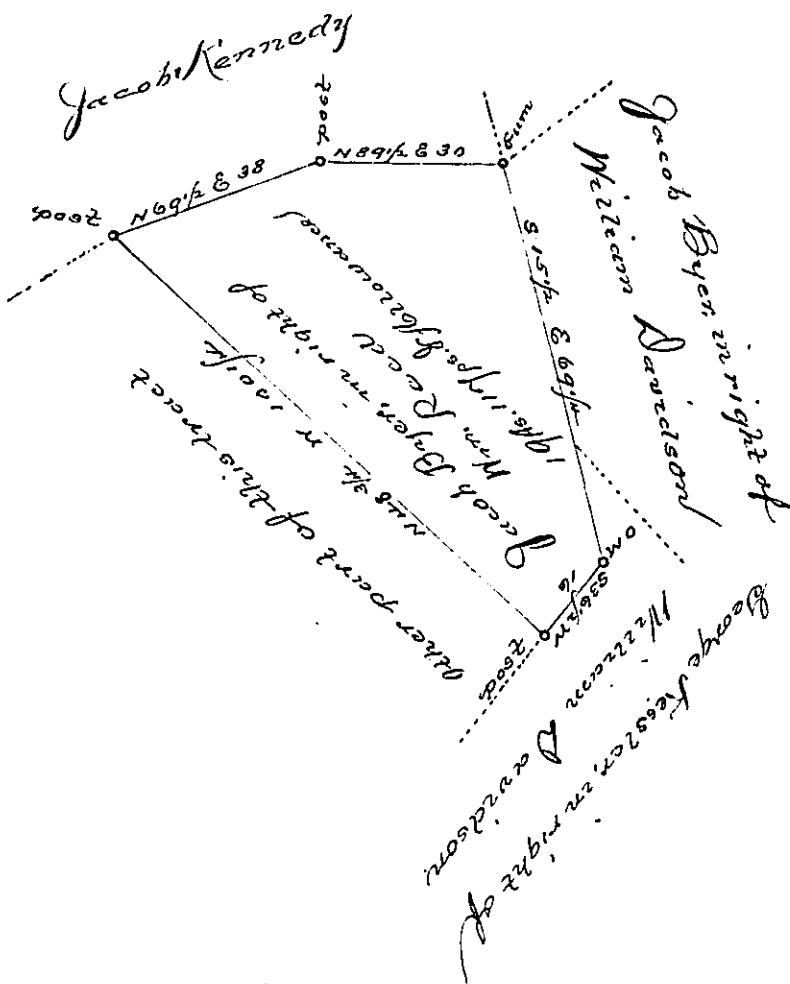 Jacob Kennedy
Post
N 89 1/2 E 30
Gum
N 69 1/2 E 38
Post
Jacob Byer, in right of
William Davidson
S 15 1/2 E 69 1/2
Jacob Byer, in right of
Wm. Reed
19 As. 117 ps. & allowance
N 48 3/4 W 100 1/2
other part of this tract
W O
S 36 1/2 W
16
Post
George Keesler, in right of
William Davidson